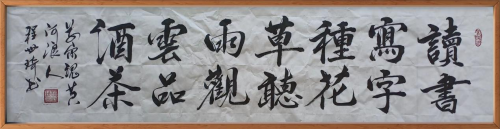 讀書
寫字
種花
草聽
雨觀
雲品
酒茶
黄
河浪人